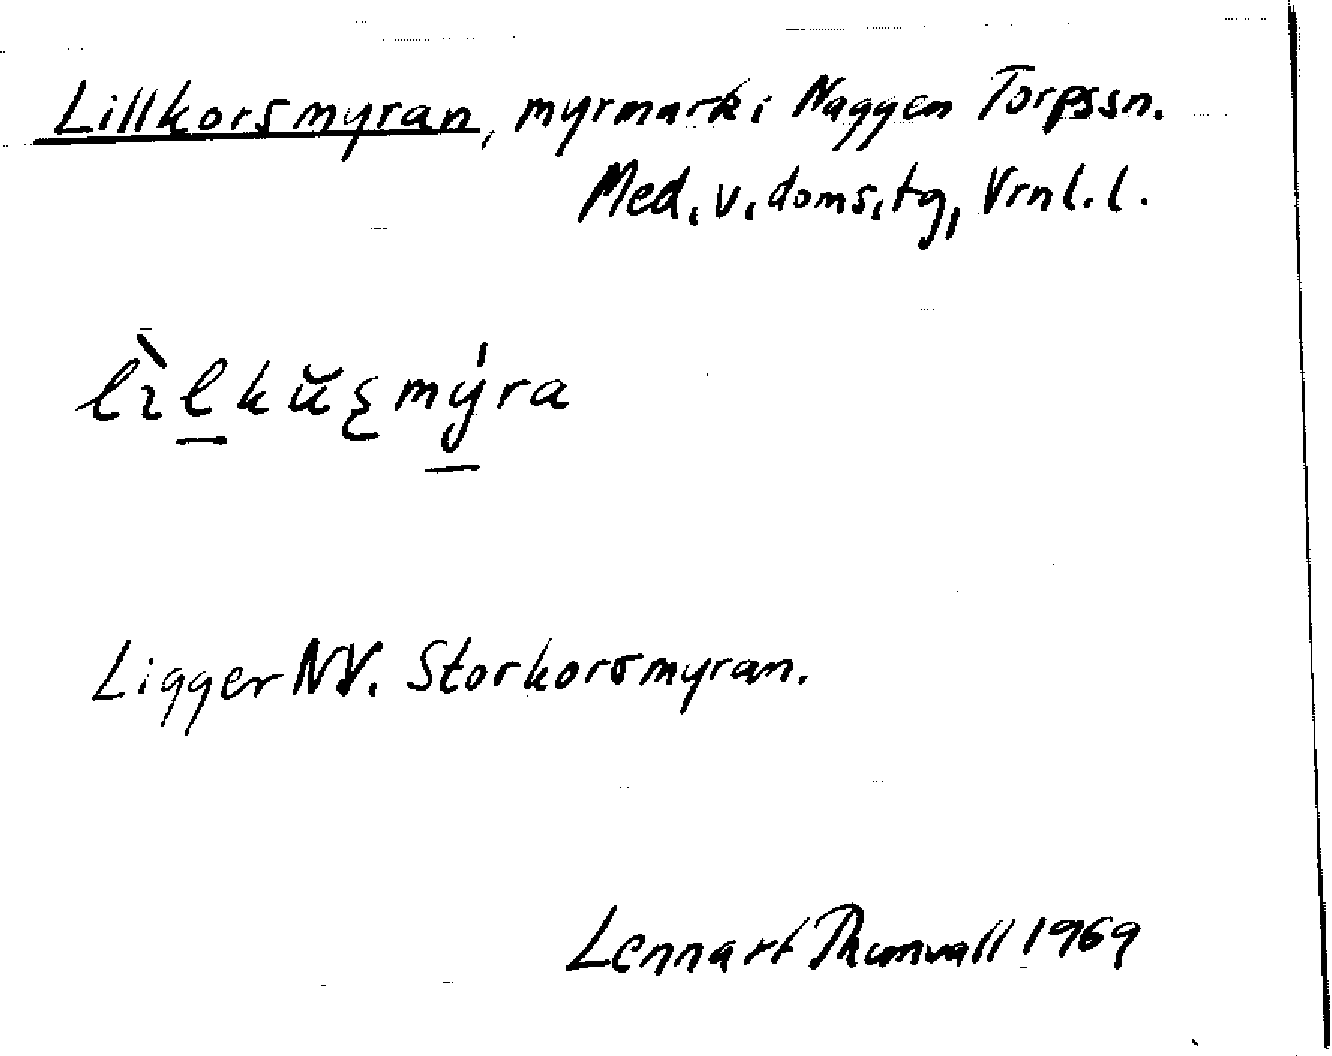 Lillkorsmyran, myrmark i Naggen Torpssn.
Med. v. doms. tg, Vrnl. l.
Ligger NV. Storkorsmyran.
Lennart Thunvall 1969